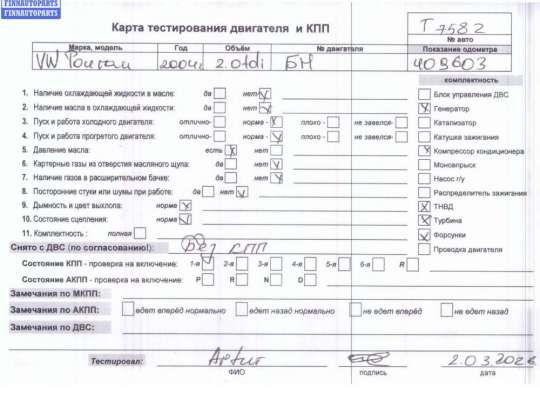 FINNAUTOPARTS
FINNAUTOPARTS
Карта тестирования двигателя и КПП
T 7582
№ авто
Марка, модель Год Объём № двигателя Показание одометра
VW Touran 2004г 2.0tdi БН 403603
комплектность
1. Наличие охлаждающей жидкости в масле: да нет
2. Наличие масла в охлаждающей жидкости: да нет
3. Пуск и работа холодного двигателя: отлично- норма - плохо - не завелся-
4. Пуск и работа прогретого двигателя: отлично- норма - плохо - не завелся-
5. Давление масла: есть нет
6. Картерные газы из отверстия масляного щупа: да нет
7. Наличие газов в расширительном бачке: да нет
8. Посторонние стуки или шумы при работе: да нет
9. Дымность и цвет выхлопа: норма
10. Состояние сцепления: норма
11. Комплектность : полная
Блок управления ДВС
Генератор
Катализатор
Катушка зажигания
Компрессор кондиционера
Моновпрыск
Насос г/у
Распределитель зажигания
ТНВД
Турбина
Форсунки
Проводка двигателя
Снято с ДВС (по согласованию!): Без КПП
Состояние КПП - проверка на включение: 1-я 2-я 3-я 4-я 5-я 6-я R
Состояние АКПП - проверка на включение: P R N D
Замечания по МКПП:
Замечания по АКПП: едет вперёд нормально едет назад нормально не едет вперёд не едет назад
Замечания по ДВС:
Тестировал: Артur 2.03.202
ФИО подпись дата